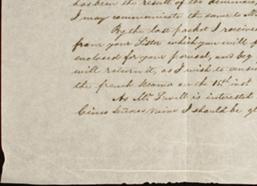 has been the result of the
I may communicate the same to Mr
By the last packet I received
from your Sister which you will f
enclosed for your perusal, and beg
will return it, as I wish to
the french Steamer on the 15th inst
As Mr is interested
I should be gl